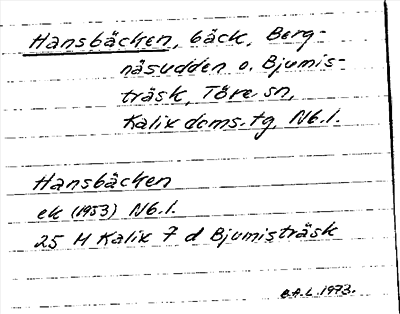 Hansbäcken, bäck, Berg-
näsudden o. Bjumis-
träsk, Töre sn,
Kalix doms. tg, Nb. l.
Hansbäcken
ek (1953) Nb. l.
25 M Kalix 7 d Bjumisträsk
E.A.L. 1973.